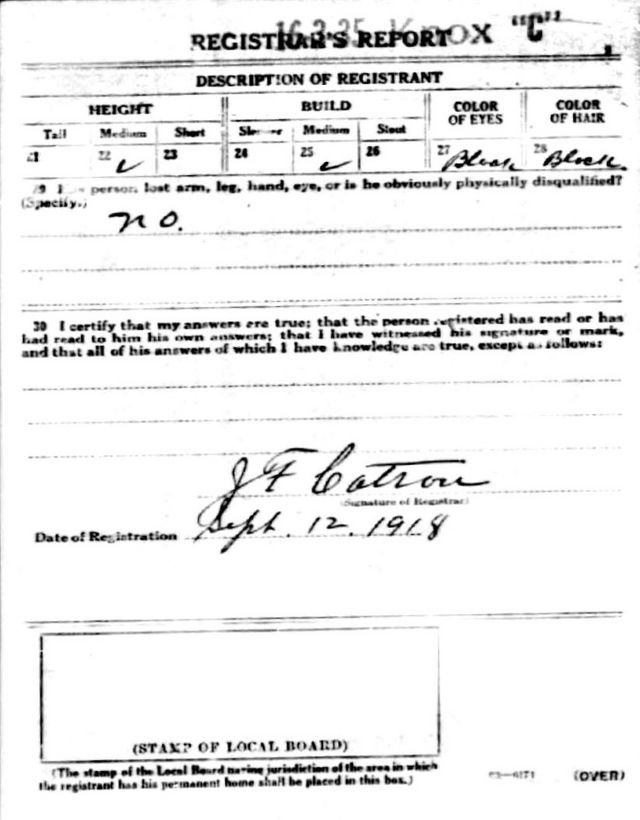 16-3-35 Knox "C"
REGISTRAR'S REPORT
DESCRIPTION OF REGISTRANT
HEIGHT BUILD COLOR OF EYES COLOR OF HAIR
Tall Medium Short Slender Medium Stout
21 22 ✓ 23 24 25 ✓ 26 27 Black 28 Black
29 person lost arm, leg, hand, eye, or is he obviously physically disqualified?
(Specify.)
no.
30 I certify that my answers are true; that the person registered has read or has
had read to him his own answers; that I have witnessed his signature or mark,
and that all of his answers of which I have knowledge are true, except as follows:
J F Catron
(Signature of Registrar)
Date of Registration Sept. 12. 1918
(STAMP OF LOCAL BOARD)
(The stamp of the Local Board having jurisdiction of the area in which
the registrant has his permanent home shall be placed in this box.)
03—6171 (OVER)